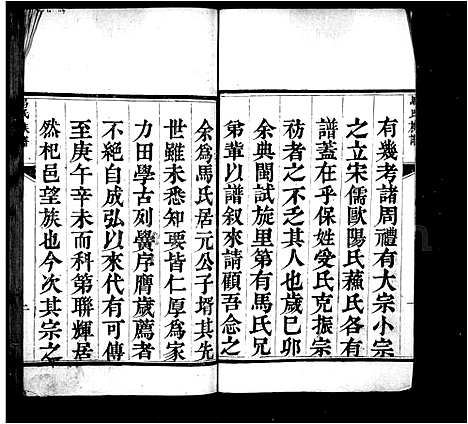 有幾考諸周禮有大宗小宗
之立宋儒歐陽氏蘓氏各有
譜蓋在乎保姓受氏克振宗
祊者之不乏其人也歲巳卯
余典閩試旋里第有馬氏兄
弟輩以譜叙來請顧吾念之
余爲馬氏居元公子壻其先
世雖未悉知要皆仁厚爲家
力田學古列黌序膺歲薦者
不絶自成弘以來代有可傳
至庚午辛未而科第聯輝居
然杞邑望族也今次其宗之